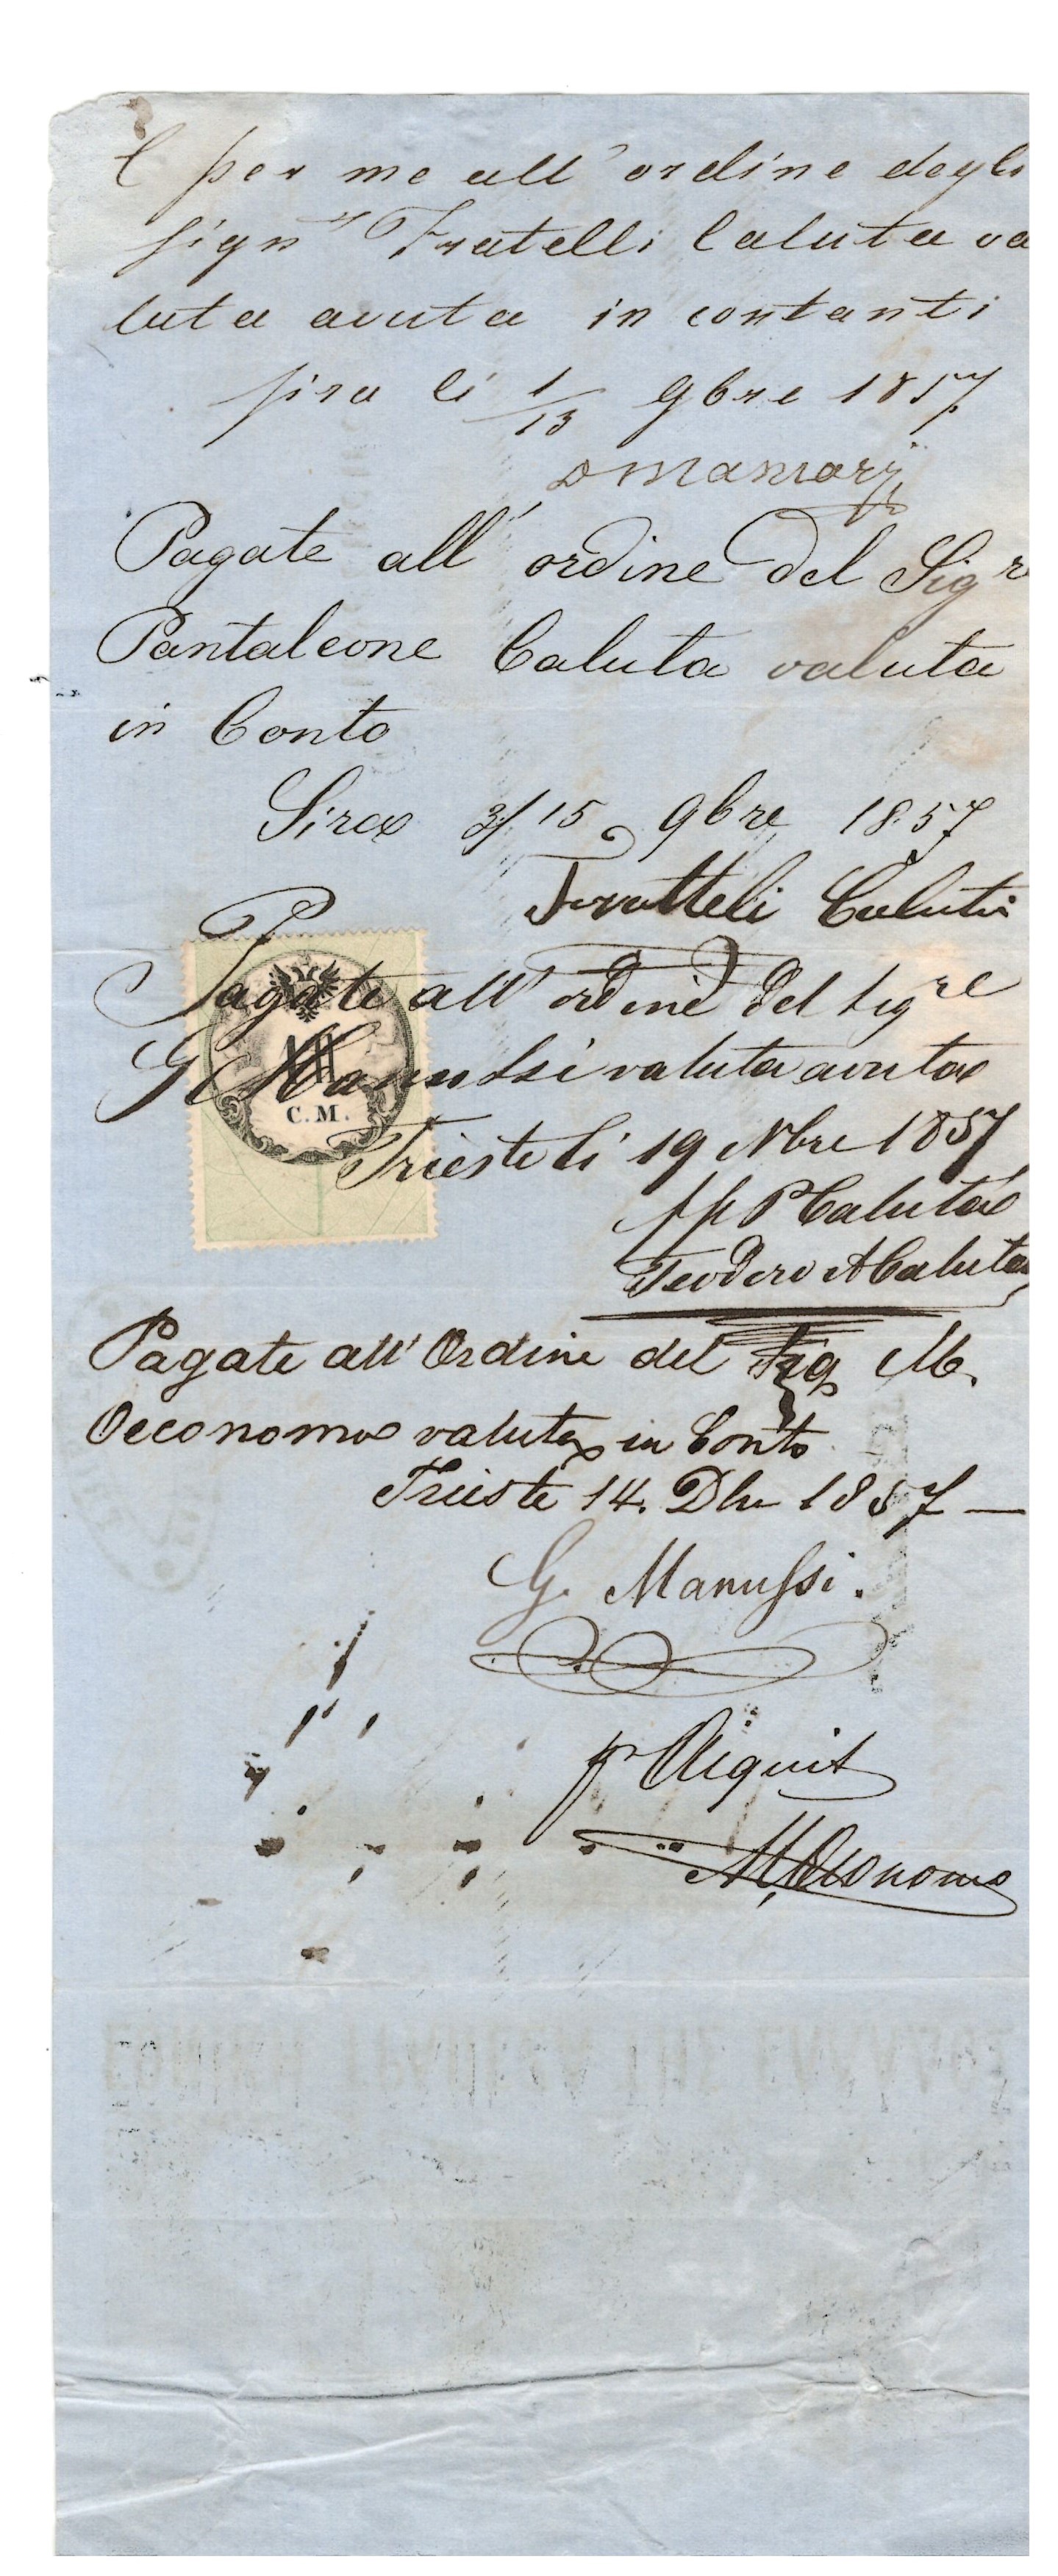 E per me all'ordine degli
Sign.ri Fratelli Caluta va
luta avuta in contanti
Sira li 1/13 9bre 1857
Pagate all'ordine del Sig re
Pantaleone Caluta valuta
in Conto
Sira 3/15 9bre 1857
Frattelli Caluta
Pagate all'ordine del Sigre
G Manussi valuta avuta
C.M.
Trieste li 19 Nbre 1857
pp P Caluta
Teodoro A Caluta
Pagate all'Ordine del Sig M.
Oeconomo valuta in Conto
Trieste 14. Dbre 1857 —
G. Manussi.
pr Aiquit
M. Oeconomo